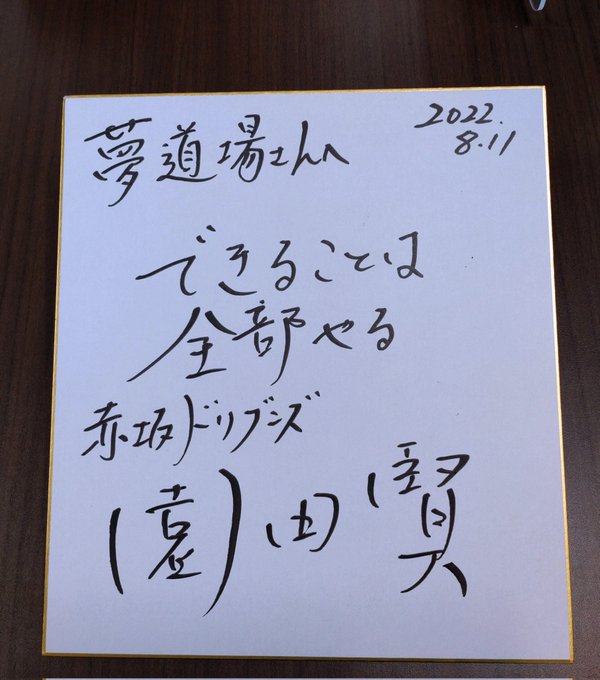 2022.
8.11
夢道場さんへ
できることは
全部やる
赤坂ドリブンズ
園田賢